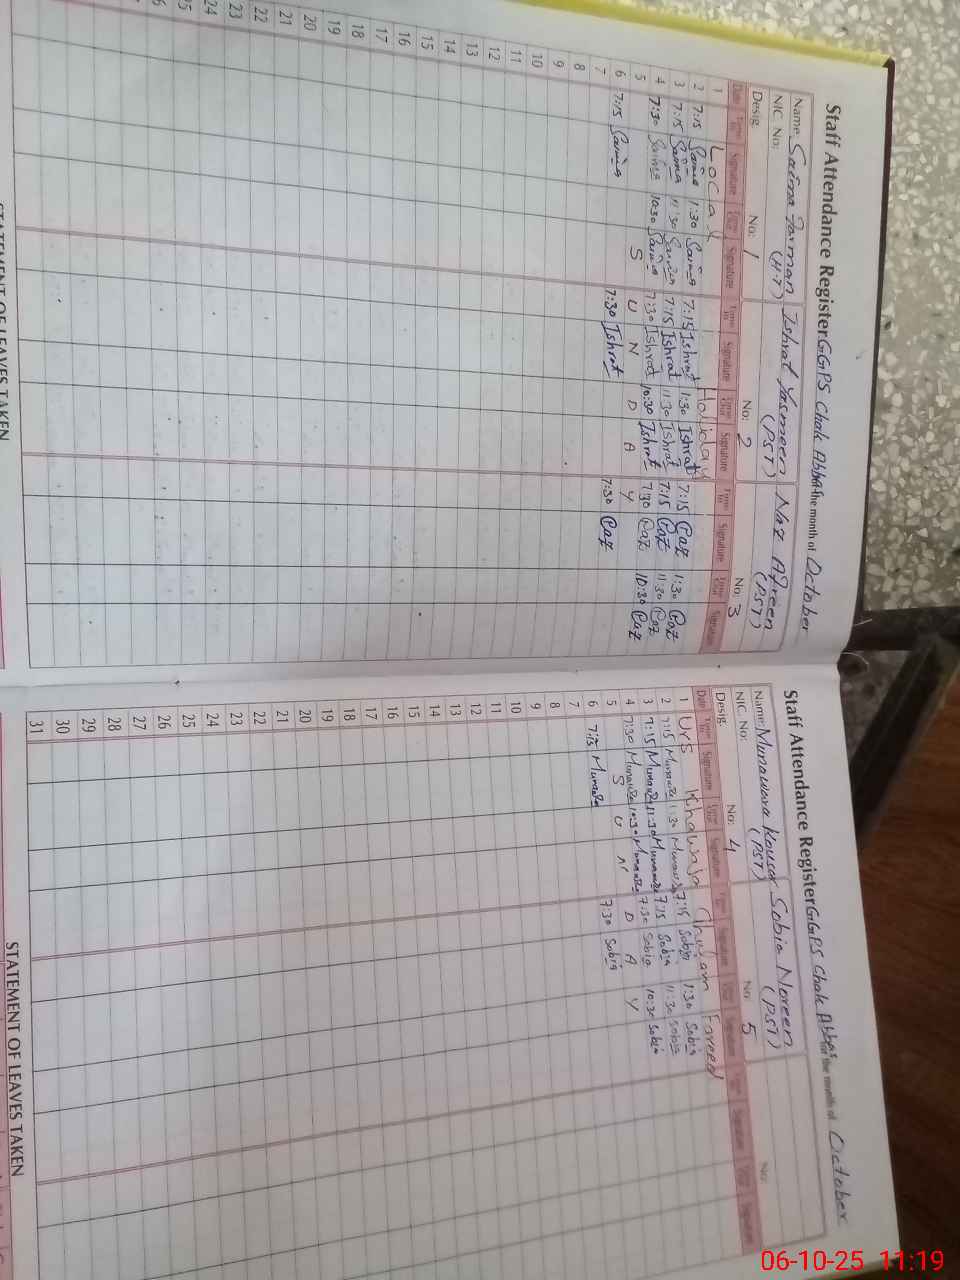 Staff Attendance Register GGPS Chak Abbas for the month of October
Name: Saima Farman (H.T) Ishrat Yasmeen (PST) Naz Afreen (PST)
NIC No:
Desig. No: 1 No: 2 No: 3
Date Time In Signature Time Out Signature Time In Signature Time Out Signature Time In Signature Time Out Signature
1 Local Holiday
2 7:15 Saima 1:30 Saima 7:15 Ishrat 1:30 Ishrat 7:15 1:30
3 7:15 Saima 11:30 Saima 7:15 Ishrat 11:30 Ishrat 7:15 11:30
4 7:30 Saima 10:30 Saima 7:30 Ishrat 10:30 Ishrat 7:30 10:30
5 S U N D A Y
6 7:15 Saima 7:30 Ishrat 7:30
7
8
9
10
11
12
13
14
15
16
17
18
19
20
21
22
23
24
25
STATEMENT OF LEAVES TAKEN
Staff Attendance Register GGPS Chak Abbas for the month of October
Name: Munawara Kousar (PST) Sobia Noreen (PST)
NIC No:
Desig. No: 4 No: 5 No:
Date Time In Signature Time Out Signature Time In Signature Time Out Signature Time In Signature Time Out Signature
1 Urs Khawaja Ghulam Fareed
2 7:15 1:30 7:15 Sobia 1:30 Sobia
3 7:15 11:30 7:15 Sobia 11:30 Sobia
4 7:30 10:30 7:30 Sobia 10:30 Sobia
5 S U N D A Y
6 7:15 7:30 Sobia
7
8
9
10
11
12
13
14
15
16
17
18
19
20
21
22
23
24
25
26
27
28
29
30
31
STATEMENT OF LEAVES TAKEN
06-10-25 11:19